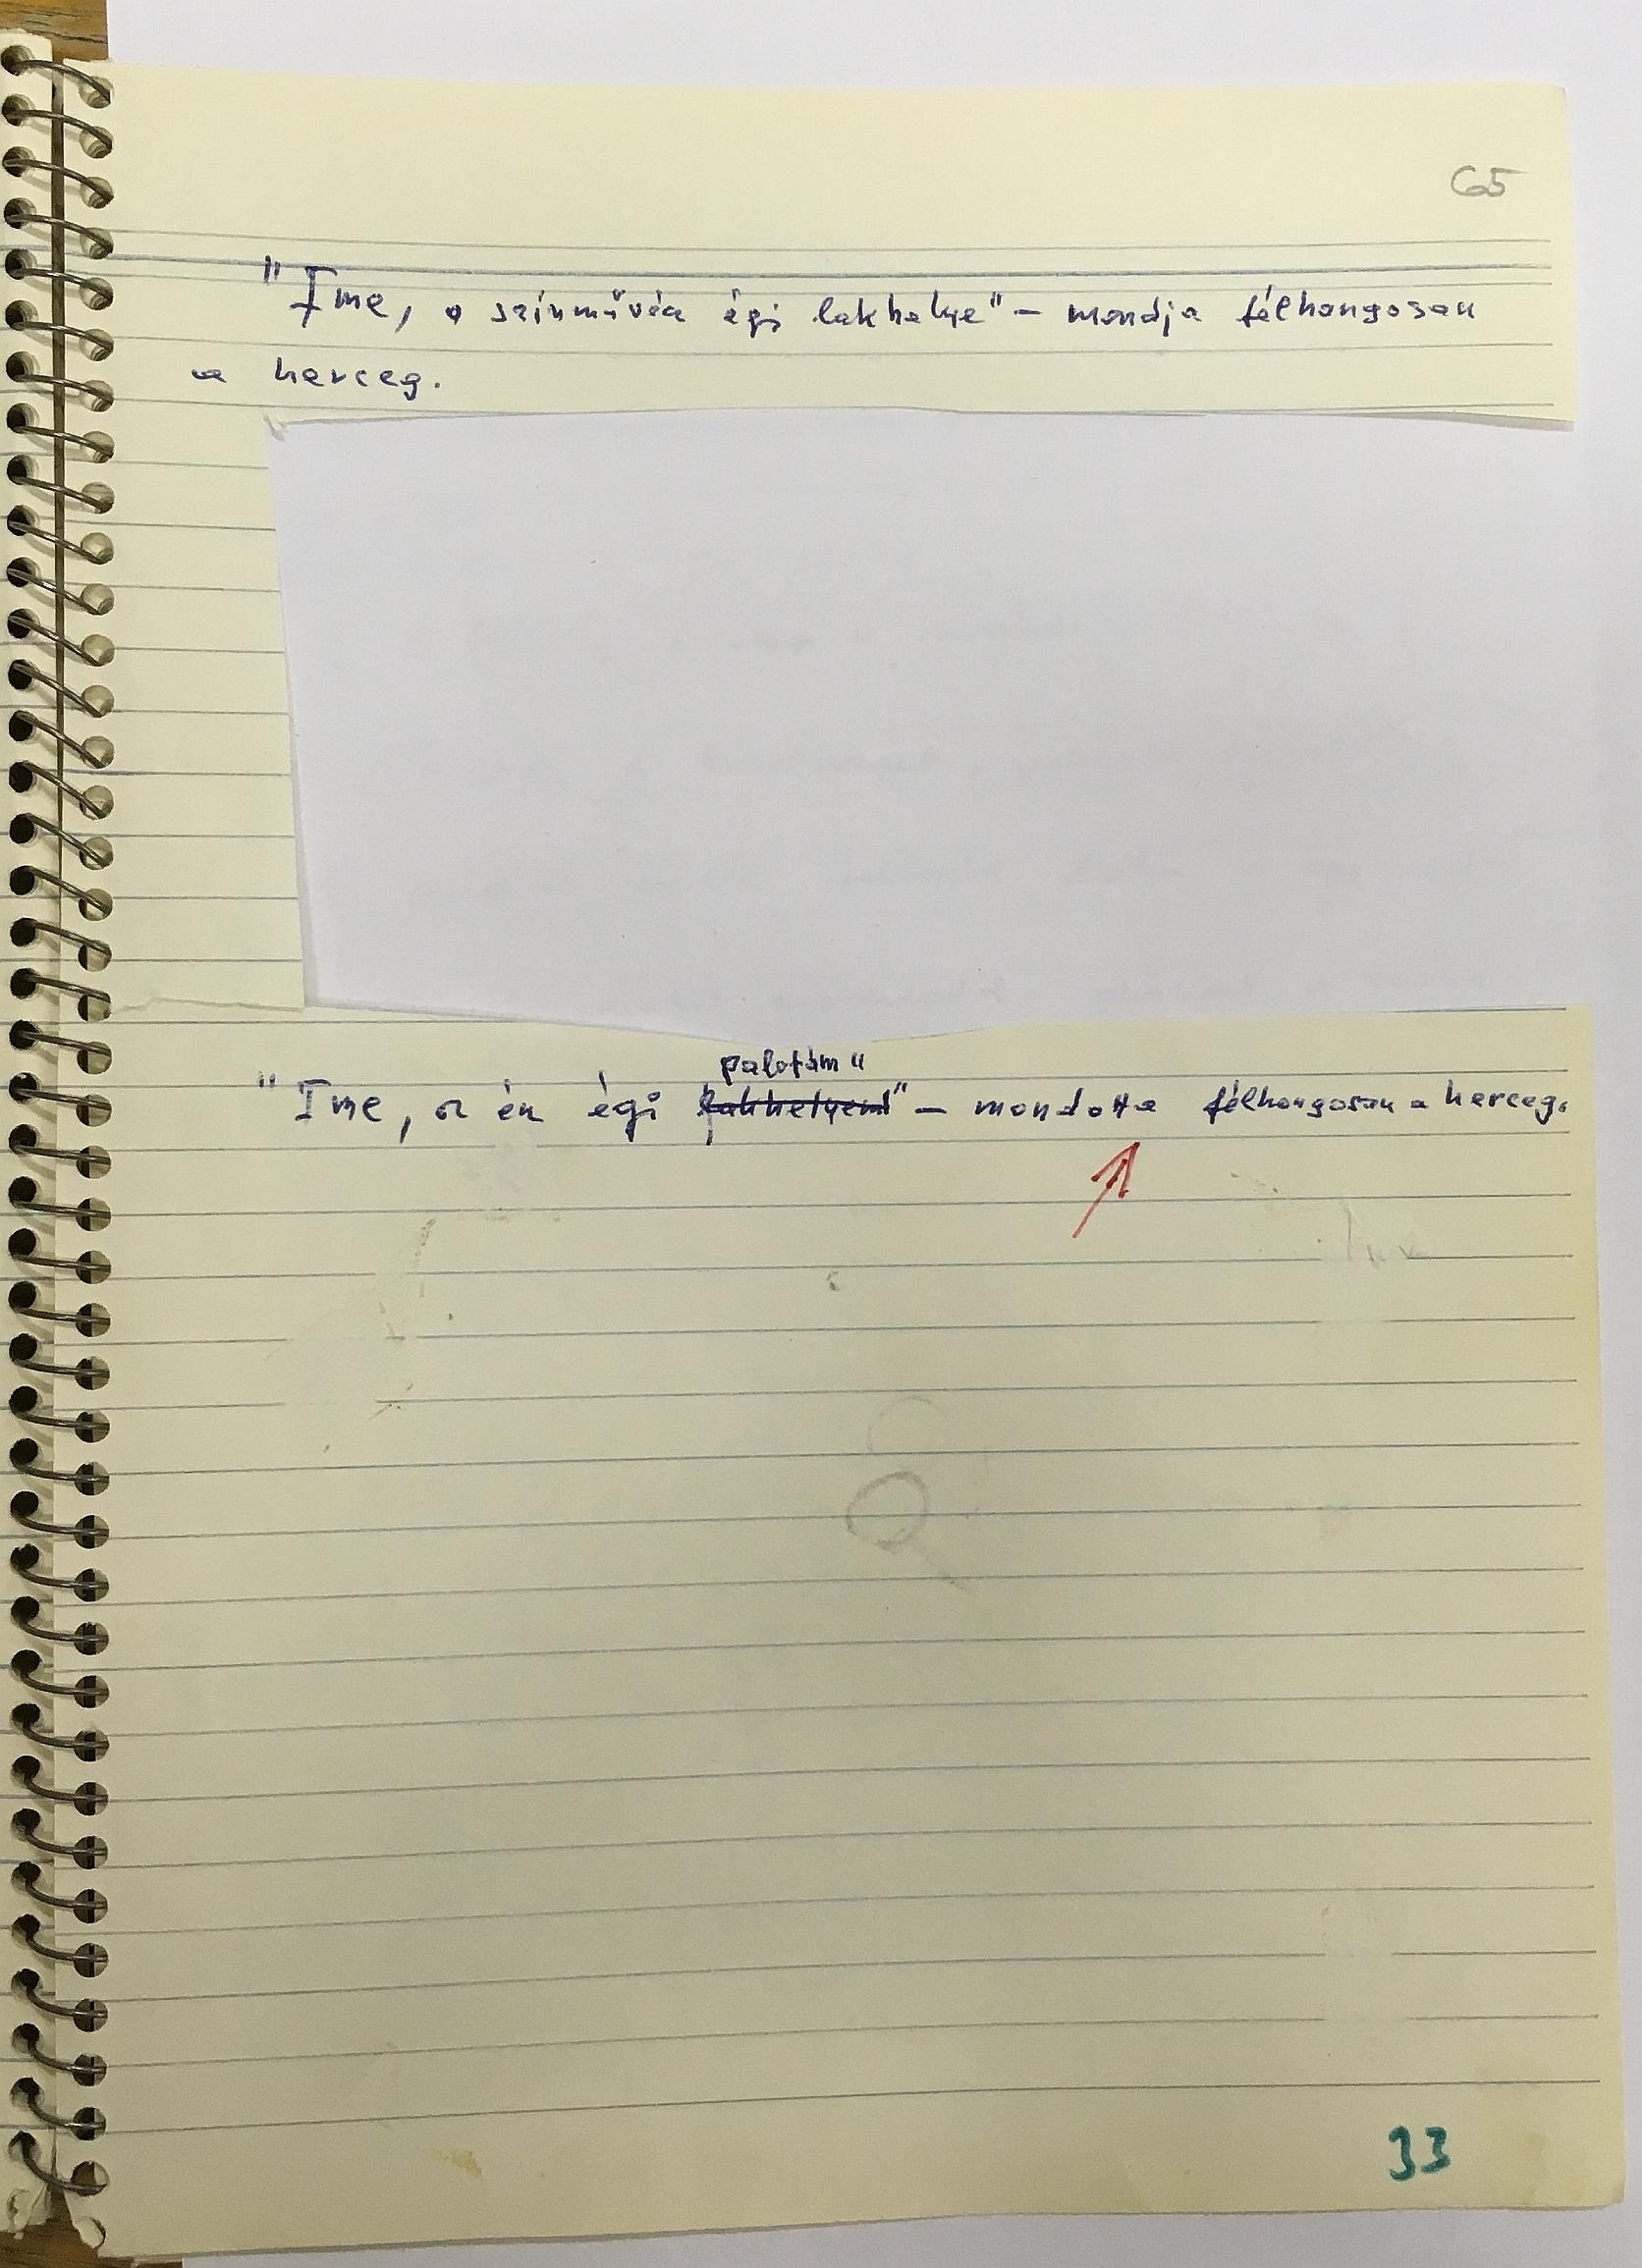 65
"Ime, a színművén égi lakhelye" – mondja félhangosan
a herceg.
palotám"
"Ime, az én égi lakhelyem" – mondotta félhangosan a herceg.
33